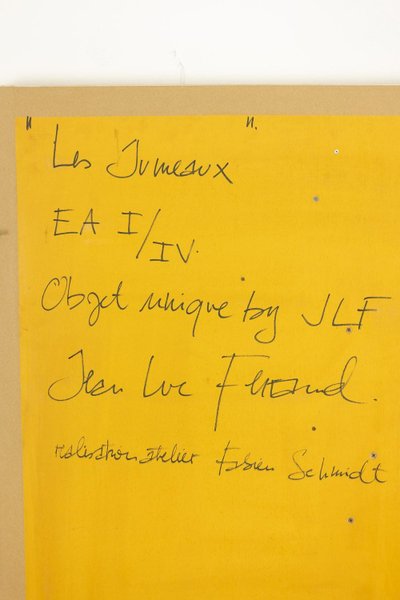 "Les Jumeaux".
EA I/IV.
Objet unique by JLF
Jean Luc Feraud.
réalisation atelier Fabien Schmidt